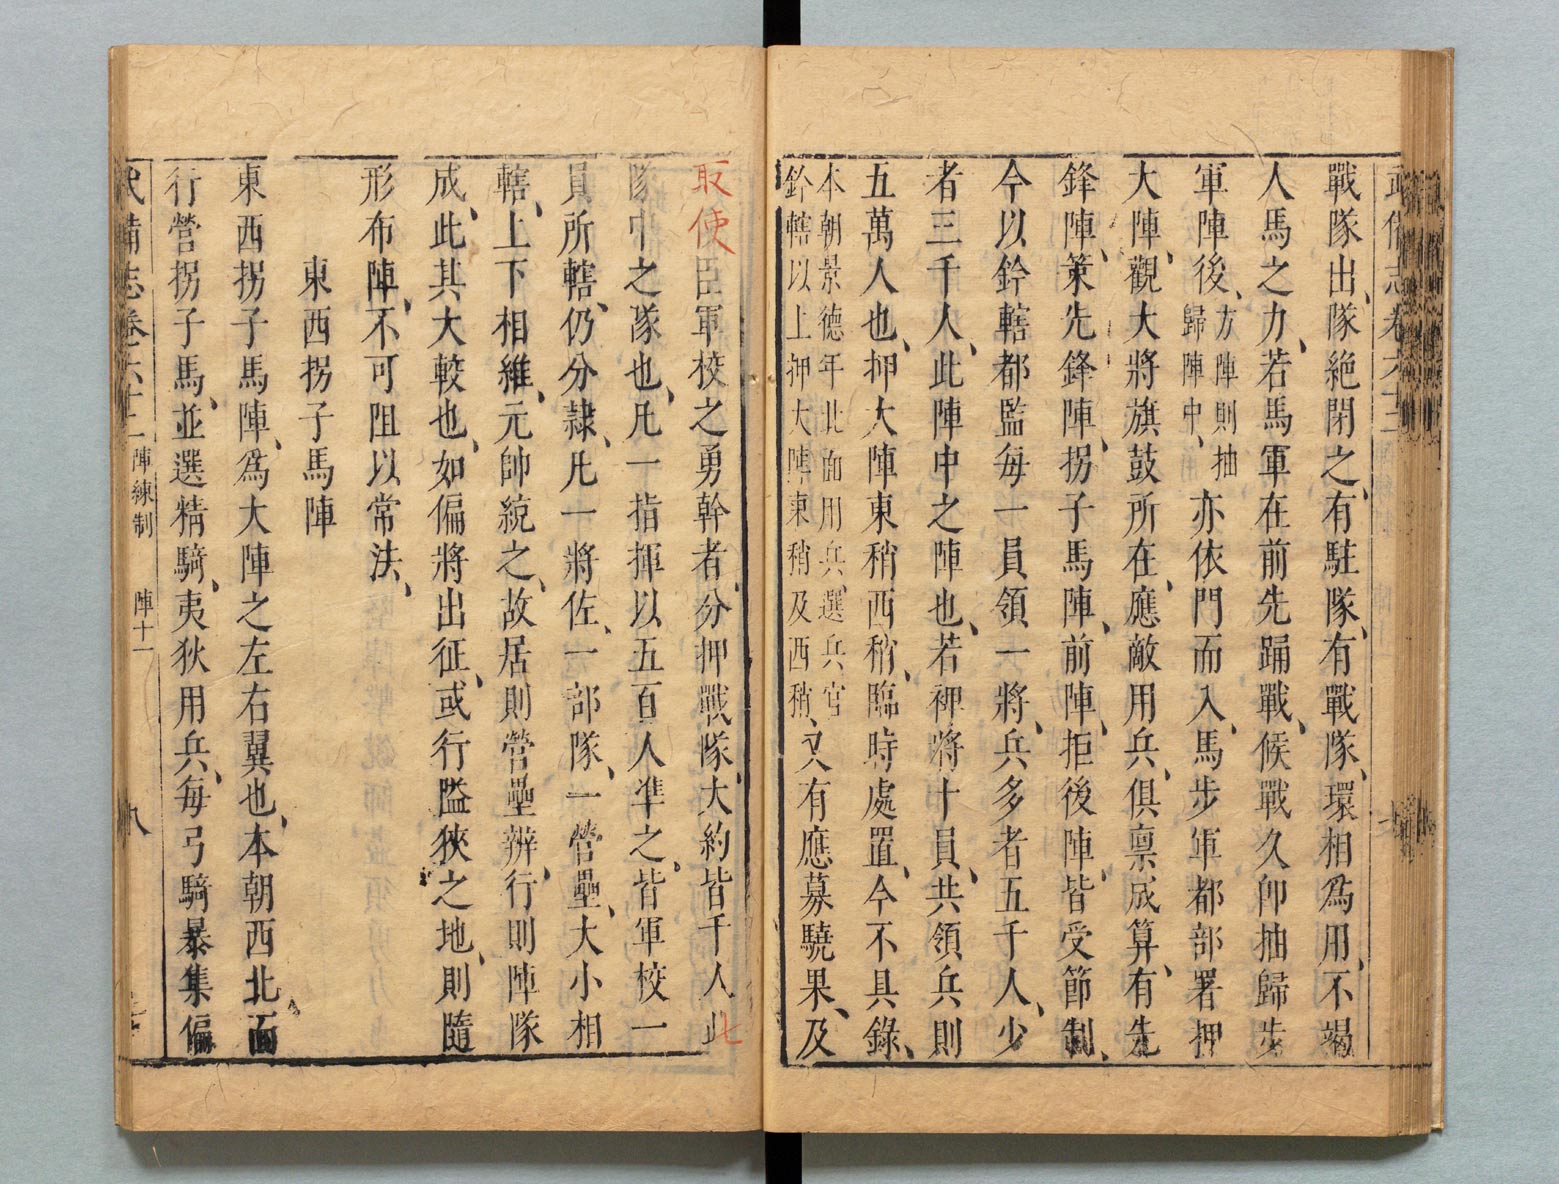 武備志卷六十二
戰隊出、隊絶閉之、有駐隊、有戰隊、環相爲用、不竭
人馬之力、若馬軍在前先踊戰、候戰久卽抽歸步
軍陣後、方陣則抽歸陣中、亦依門而入、馬步軍都部署押
大陣、觀大將旗鼓所在、應敵用兵、俱稟成算、有先
鋒陣、策先鋒陣、拐子馬陣、前陣、拒後陣、皆受節制、
今以鈐轄都監每一員領一將、兵多者五千人、少
者三千人、此陣中之陣也、若裨將十員、共領兵則
五萬人也、押大陣東稍西稍、臨時處置、今不具錄、
本朝景德年北面用兵、選兵官
鈐轄以上押大陣東稍及西稍、又有應募驍果、及
取使臣軍校之勇幹者、分押戰隊、大約皆千人此
隊中之隊也、凡一指揮以五百人準之、皆軍校一
員所轄、仍分隷、凡一將佐、一部隊、一營壘、大小相
轄、上下相維、元帥統之、故居則營壘辨、行則陣隊
成、此其大較也、如偏將出征、或行隘狹之地、則隨
形布陣、不可阻以常法、
東西拐子馬陣
東西拐子馬陣、爲大陣之左右翼也、本朝西北面
行營拐子馬、並選精騎、夷狄用兵、每弓騎暴集偏
武備志卷六十二 陣練制 陣十一 八